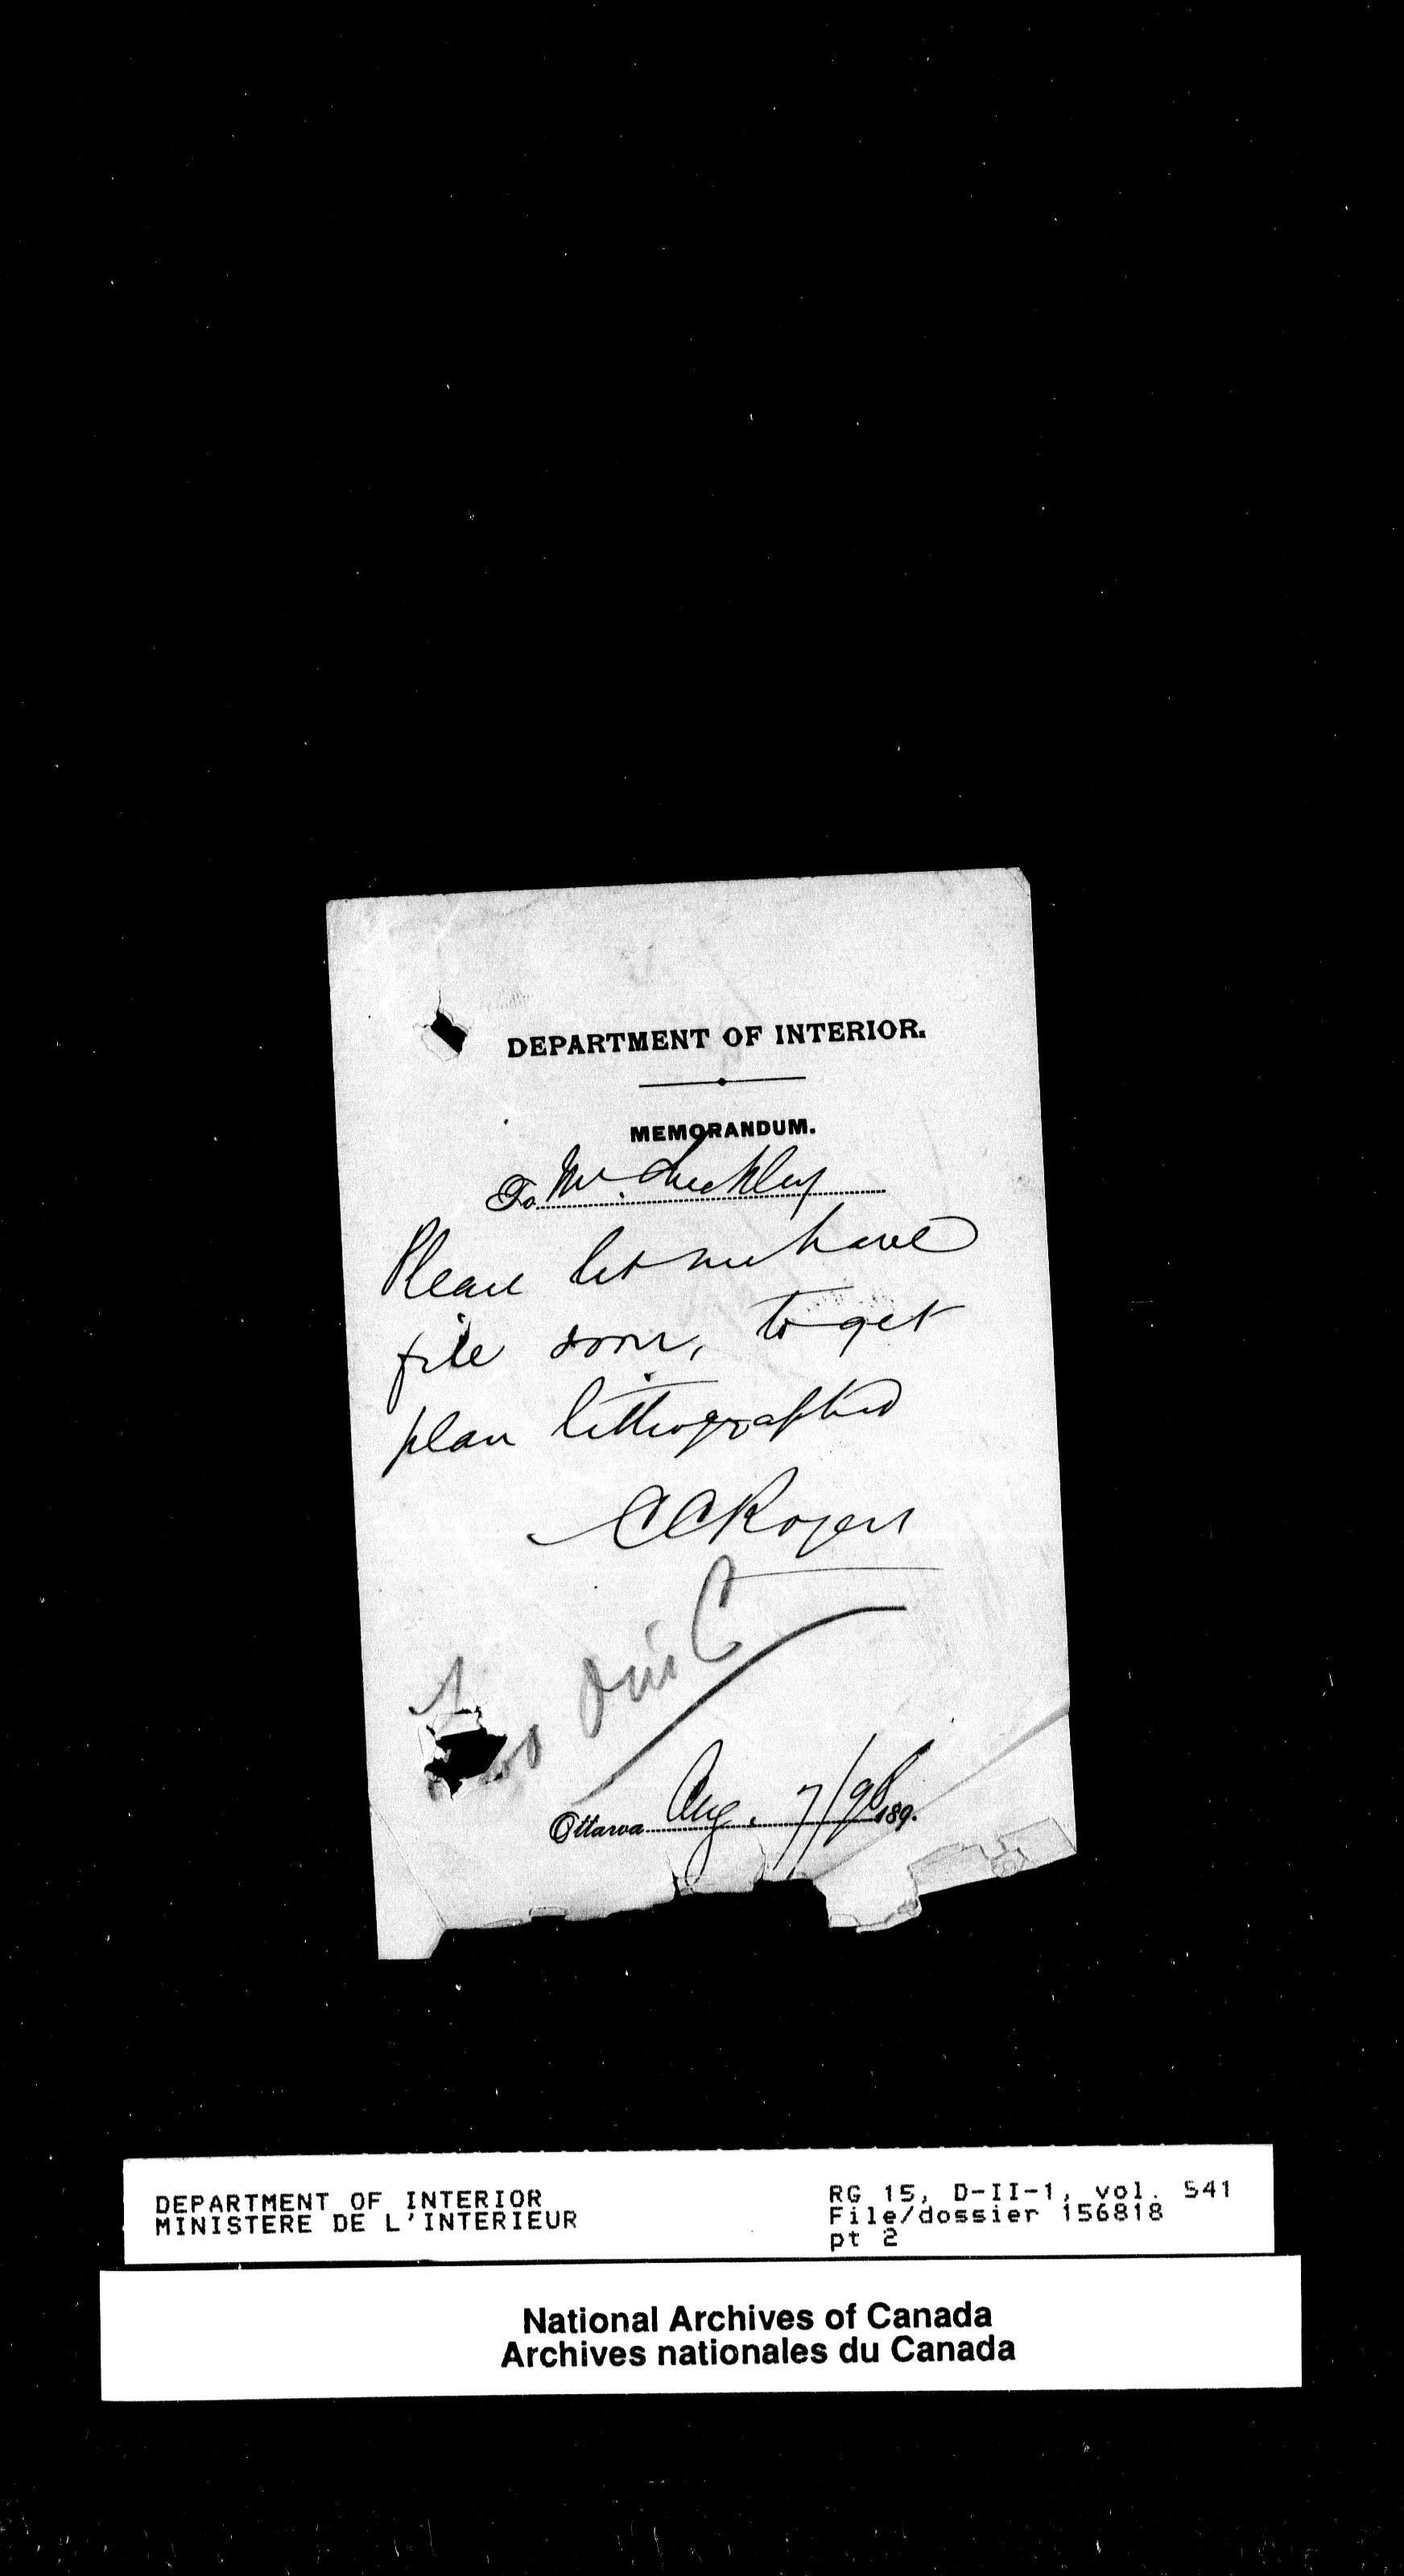 DEPARTMENT OF INTERIOR.
MEMORANDUM.
To Mr.
Please let me have
file soon, to get
plan lithographed
CCRogers
Ottawa Aug. 7/98 189.
DEPARTMENT OF INTERIOR
MINISTERE DE L'INTERIEUR
RG 15, D-II-1, vol. 541
File/dossier 156818
pt 2
National Archives of Canada
Archives nationales du Canada